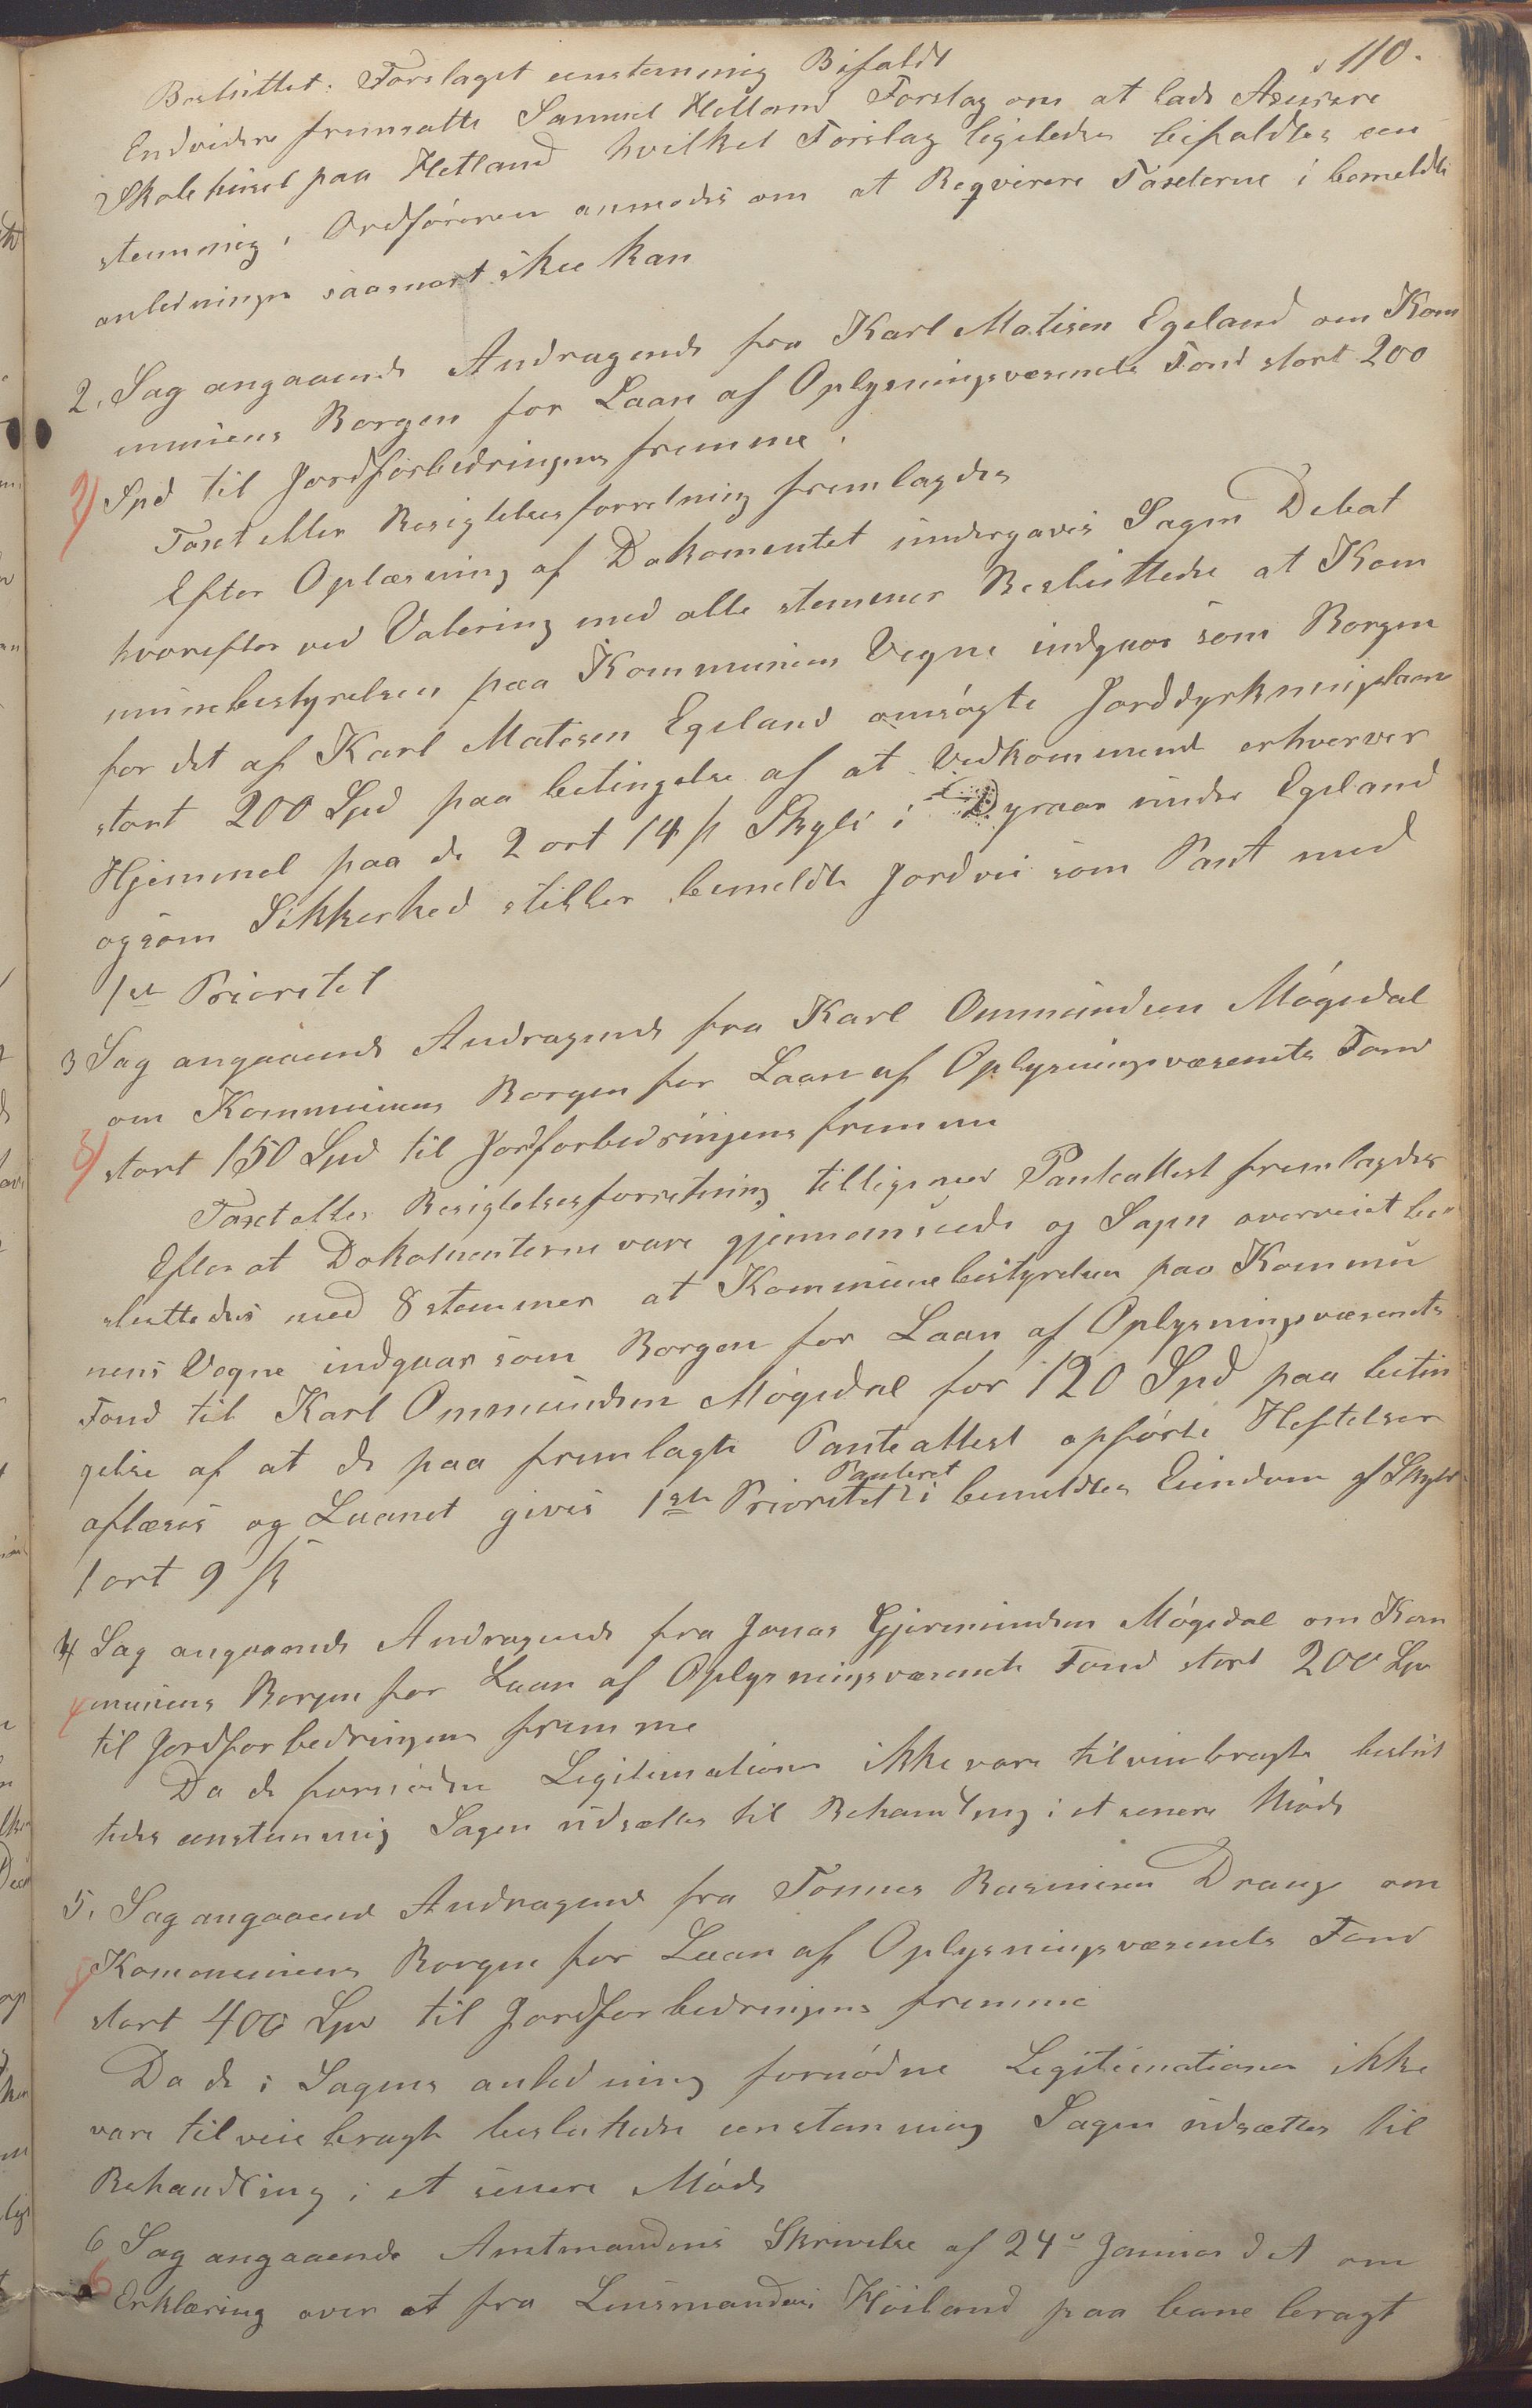 110.
Besluttet: Forslaget eenstemmig Bifaldt
Endvidere fremsatte Samuel Hetland Forslag om at lade Asurere
Skolehuset paa Hetland hvilket Forslag ligeledes bifaldtes een
stemmig, Ordføreren anmodes om at Reqvirere Taxterne i bemeldte
anledninge saasnart skee kan
2. Sag angaaende Andragende fra Karl Matisen Egeland om Kom
munens Borgen for Laan af Oplysningsvæsenets Fond stort 200
2) Spd til Jordforbedringens fremme.
Taxt eller Besigtelsesforretning fremlagdes
Efter Oplæsning af Dokomentet undergaves Sagen Debat
hvorefter ved Votering med alle stemmer Besluttedes at Kom
munebestyrelsen paa Kommunens Vegne indgaar som Borgen
for det af Karl Matesen Egeland omsøgte Jorddyrkningslaan
stort 200 Spd paa betingelse af at Vedkommende erhverver
Hjemmel paa de 2 ort 14 ß Skyld i Dyraas under Egeland
og som Sikkerhed stiller bemeldte Jordvei som Pant med
1ste Prioritet
3 Sag angaaende Andragende fra Karl Ommundsen Møgedal
om Kommunens Borgen for Laan af Oplysningsvæsenets Fond
3) stort 150 Spd til Jordforbedringens fremme
Taxt eller Besigtelsesforretning tilligemed Panteattest fremlagdes
Efter at Dokomenterne vare gjennemseede og Sagen overveiet be„
sluttedes med 8 stemmer at Kommunebestyrelsen paa Kommu
nens Vegne indgaar som Borgen for Laan af Oplysningsvæsenets
Fond til Karl Ommundsen Møgedal for 120 Spd paa betin
gelse af at de paa fremlagte Panteattest opførte Heftelser
aflæses og Laanet gives 1ste Prioritet Panteret i bemeldtes Eiendom af Skyld
1 ort 9 ß
4 Sag angaaende Andragende fra Jonas Gjermundsen Møgedal om Kom
4 munens Borgen for Laan af Oplysningsvæsenets Fond stort 200 Spd
til Jordforbedringens fremme
Da de fornødne Legitimationer ikke vare tilveiebragte beslut
tedes eenstemmig Sagen udsættes til Behandling i et senere Møde
5. Sag angaaende Andragende fra Tønnes Rasmusen Drange om
5 Kommunens Borgen for Laan af Oplysningsvæsenets Fond
stort 400 Spd til Jordforbedringens fremme
Da de i Sagens anledning fornødne Legitimationer ikke
vare tilveiebragte besluttedes eenstemmig Sagen udsættes til
Behandling i et senere Møde
6 Sag angaaende Amtmandens Skrivelse af 24de Januar d A om
6 Erklæring over et fra Lensmanden Høiland paa bane bragt